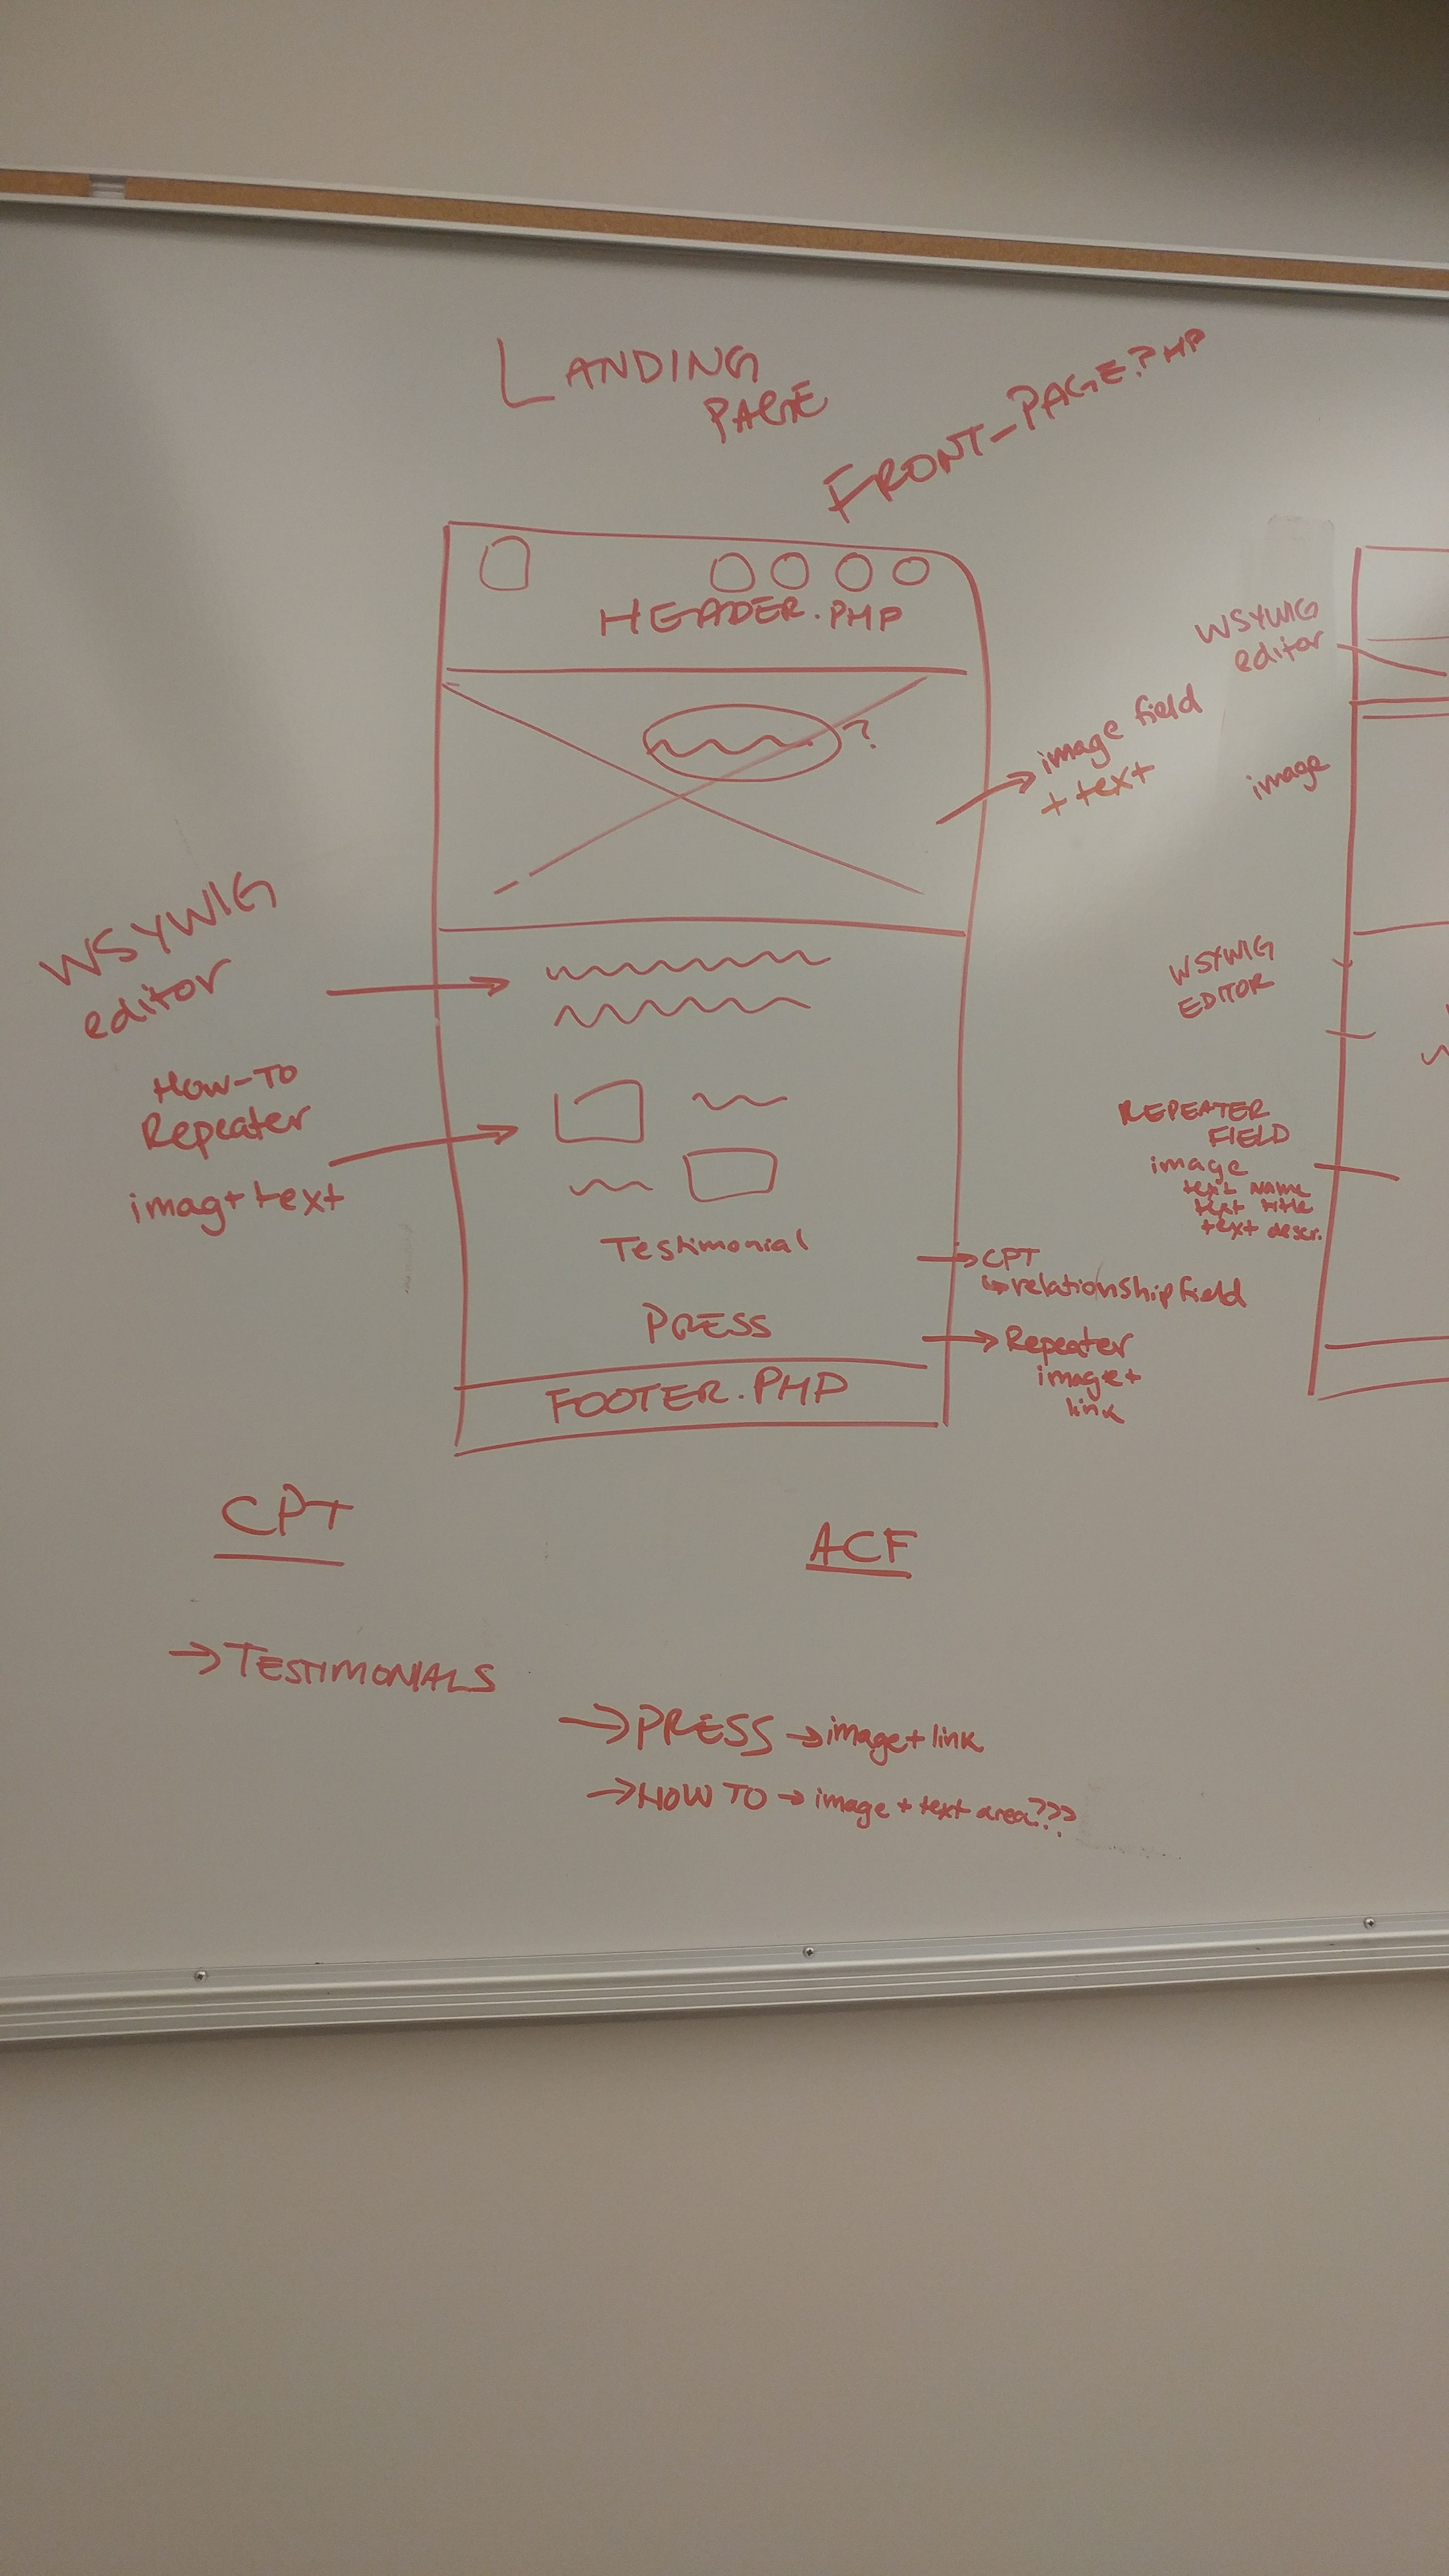 LANDING
PAGE
FRONT-PAGE.PHP
HEADER.PHP
?
image field
+ text
WSYWIG
editor
How-To
Repeater
imag+text
Testimonial
CPT
↳relationship field
PRESS
Repeater
image+
link
FOOTER.PHP
WSYWIG
editor
image
WSYWIG
EDITOR
REPEATER
FIELD
image
text NAME
text title
text descr.
CPT
→TESTIMONIALS
ACF
→PRESS→image+link
→HOW TO→image + text area???